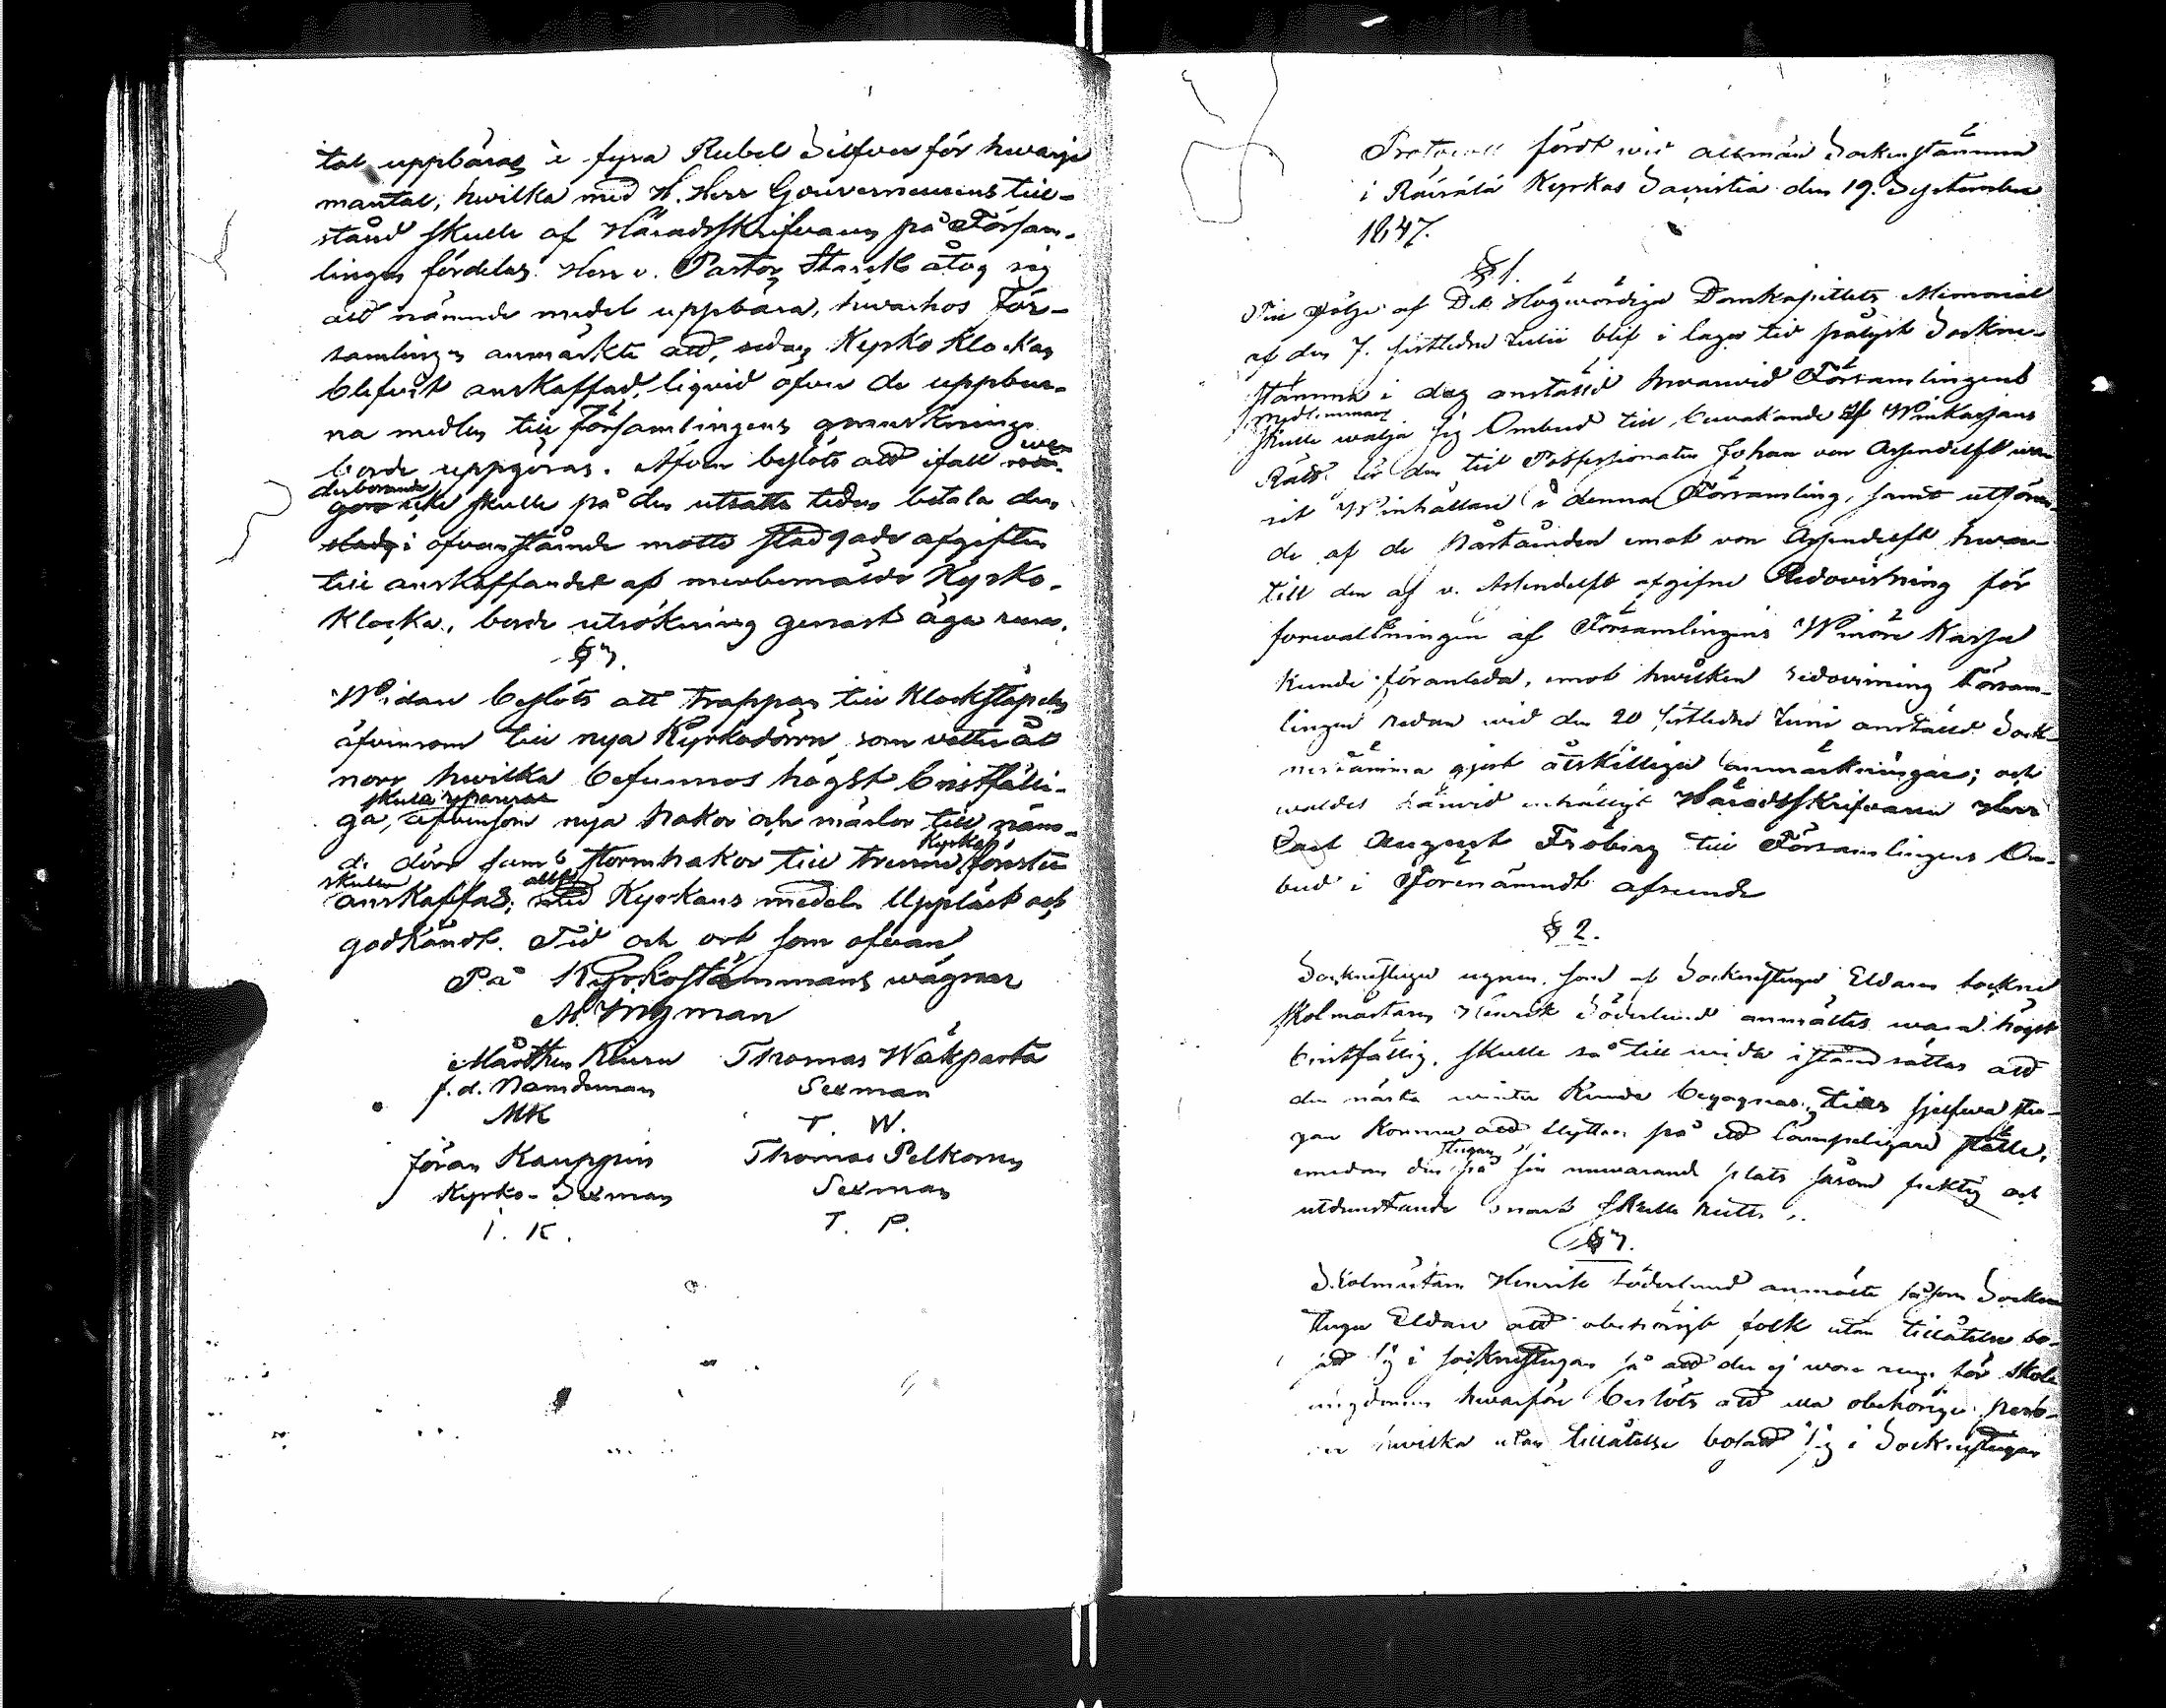 tal uppbäras è fyra Rubel Silfver för hwarje
mantal, hwilka med H. Herr Gouverneurens till-
stånd skulle af Häradsskrifvaren på Försam-
lingen fördelas. Herr v. Pastor Starck åtog sig
att nämnde medel uppbära, hwarhos För-
samlingen anmärkte att, sedan Kyrko Klockan
blefvit anskaffad, liqvid öfver de uppbur-
na medlen till Församlingens granskning
borde uppgöras. Äfven beslöts att ifall
icke skulle på den utsatta tiden betala den
i ofvanstående motto stadgade afgiften
till anskaffandet af merbemälde Kyrko-
Klocka, borde utsökning genast äga rum.
§ 7.
Widare beslöts att trappan till Klockstapeln
äfvensom till nya Kyrkodörrn som vetter åt
norr hwilka befunnos högst bristfälli-
skulle repareras
ga, äfvensom nya hakor och märlor till näm-
de dörr samt stormhakor till trenne Kyrkofönster
skulle
anskaffas, allt med Kyrkans medel. Uppläst och
godkändt. Tid och ort som ofvan
På Kyrkostämmans wägnar
M. Wigman
Mårthen Kiuru Thomas Wäkiparta
f.d. Nämdeman Sexman
MK T. W.
Jöran Kauppin Thomas Pelkonen
Kyrko-Sexman Sexman
I. K. T. P.
Protocoll fördt wid allmän Sockenstämma
i Räisälä Kyrkas Sacristia den 19. September
1847.
§ 1.
följe af Det Högwördiga Domkapitlets Memorial
af den 7. sistledne Julii blef i laga tid pålyst Sockne-
stämma i dag anstäld hwarwid Församlingens
Medlemmar
skulle wälja sig Ombud till bewakande af Winkassans
Rätt för den tid Possessionaten Johan von Assendelft wa-
rit Winhållare i denna Församling, samt utföran-
de af de påståenden emot von Assendelft hwar-
till den af v. Assendelft afgifne Redovisning för
förwaltningen af Församlingens Winöre Kassa
kunde föranleda, emot hwilken redovisning Försam-
lingen redan wid den 20 sistledne Junii anstäld Sock-
nestämma gjort åtskilliga anmärkningar; och
waldes härwid enhälligt Häradsskrifvaren Herr
Carl August Fröbing till Församlingens Om-
bud i förenämndt afseende
§ 2.
Socknestugu ugnen, som af Socknestugu Eldaren sockne
Skolmästaren Henrik Söderlund anmältes wara högst
bristfällig, skulle så till wida iståndsättas att
den nästa winter kunde begagnas, tills sjelfwa stu-
gan kommer att flyttas på ett lämpeligare ställe,
emedan den på sin nuwarande plats såsom fuktig och
utdunstande snart skulle
§ 3.
Skolmästaren Henrik Söderlund anmälte såsom Socken
stugu Eldare att obehörigt folk utan tillåtelse bo-
satt sig i socknestugan så att der ej wore rum för Skol
ungdomen hwarföre beslöts att alla obehöriga perso-
ner hwilka utan tillåtelse bosatt sig i Socknestugan